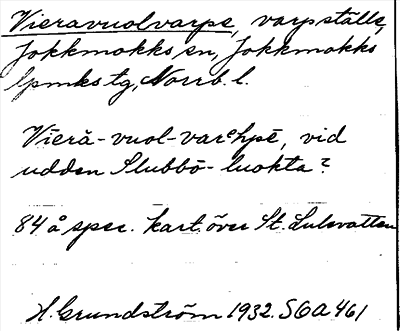 Vieravuolvarpe, varpställe,
Jokkmokks sn, Jokkmokks
lpmkstg, Norrb. l.
Vīeră-vuol-varᵉhpē, vid
udden Slubbō-luokta?
84 å spec. kart. över St. Lulevatten
H. Grundström 1932. SOA 461